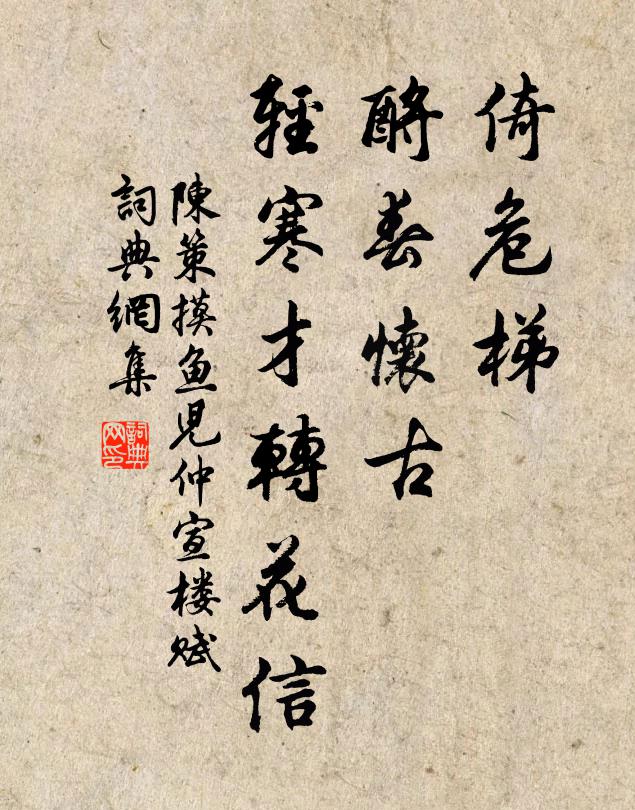 倚危梯
酹春懷古
輕寒才轉花信
陳策摸魚兒仲宣樓賦
詞典網集
詞典網印